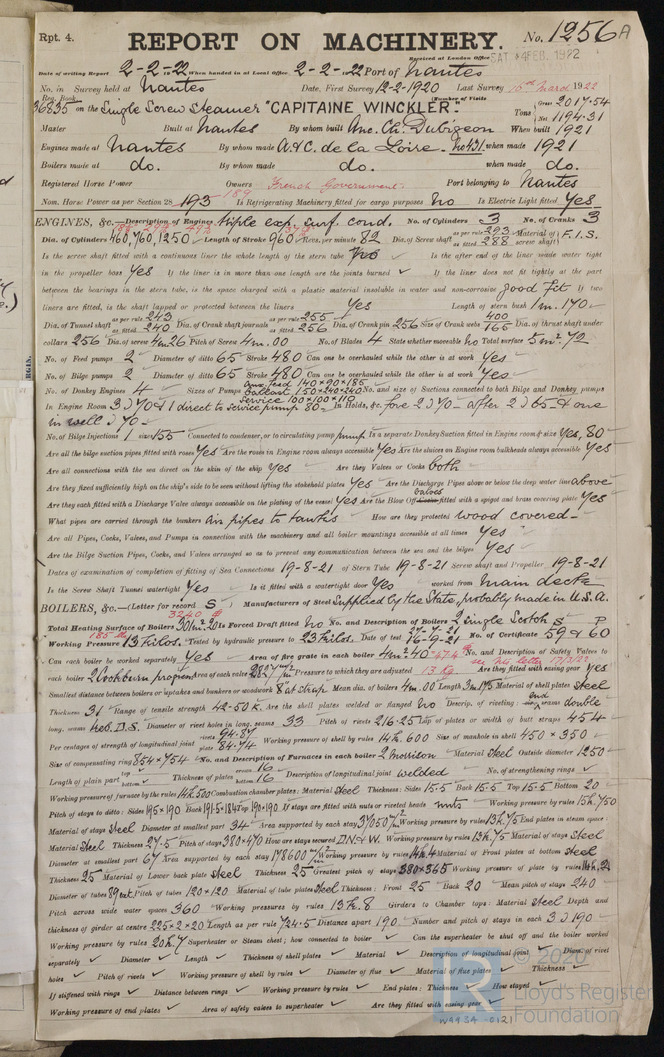 Rpt. 4.
REPORT ON MACHINERY. No. 1256A
Received at London Office SAT 4 FEB. 1922
Date of writing Report 2-2-1922 When handed in at Local Office 2-2-1922 Port of Nantes
No. in Survey held at Nantes Date, First Survey 12-2-1920 Last Survey 1922
Reg. Book. Number of Visits
36835 on the Single Screw Steamer "CAPITAINE WINCKLER" Tons Gross 2017.54 Net 1194.31
Master Built at Nantes By whom built Anc. Ch. Dubigeon When built 1921
Engines made at Nantes By whom made A. & C. de la Loire. No 431 when made 1921
Boilers made at do. By whom made do. when made do.
Registered Horse Power Owners French Government. Port belonging to Nantes
Nom. Horse Power as per Section 28 193 189 Is Refrigerating Machinery fitted for cargo purposes No Is Electric Light fitted Yes
ENGINES, &c.—Description of Engines triple exp. surf. cond. No. of Cylinders 3 No. of Cranks 3
Dia. of Cylinders 460, 760, 1250 Length of Stroke 960 Revs. per minute 82 Dia. of Screw shaft as per rule 293 as fitted 288 Material of screw shaft F.I.S.
Is the screw shaft fitted with a continuous liner the whole length of the stern tube Is the after end of the liner made water tight
in the propeller boss Yes If the liner is in more than one length are the joints burned ✓ If the liner does not fit tightly at the part
between the bearings in the stern tube, is the space charged with a plastic material insoluble in water and non-corrosive good fit If two
liners are fitted, is the shaft lapped or protected between the liners Yes Length of stern bush 1m.170
Dia. of Tunnel shaft as per rule 243 as fitted 240 Dia. of Crank shaft journals as per rule 255 as fitted 256 Dia. of Crank pin 256 Size of Crank webs 400 165 Dia. of thrust shaft under
collars 256 Dia. of screw 4m26 Pitch of Screw 4m.00 No. of Blades 4 State whether moveable No Total surface 5m².72
No. of Feed pumps 2 Diameter of ditto 65 Stroke 480 Can one be overhauled while the other is at work Yes
No. of Bilge pumps 2 Diameter of ditto 65 Stroke 480 Can one be overhauled while the other is at work Yes
No. of Donkey Engines 4 Sizes of Pumps aux. feed 140×90×185 ballast 150×240×240 service 100×100×110 No. and size of Suctions connected to both Bilge and Donkey pumps
In Engine Room 3 J 70 & 1 direct to Service pump 80 In Holds, &c. fore 2 J 70 - after 2 J 65 & one
in well J 70
No. of Bilge Injections 1 sizes 155 Connected to condenser, or to circulating pump pump Is a separate Donkey Suction fitted in Engine room & size Yes, 80
Are all the bilge suction pipes fitted with roses Yes Are the roses in Engine room always accessible Yes Are the sluices on Engine room bulkheads always accessible Yes
Are all connections with the sea direct on the skin of the ship Yes Are they Valves or Cocks both
Are they fixed sufficiently high on the ship's side to be seen without lifting the stokehold plates Yes Are the Discharge Pipes above or below the deep water line above
Are they each fitted with a Discharge Valve always accessible on the plating of the vessel Yes Are the Blow Off valves fitted with a spigot and brass covering plate Yes
What pipes are carried through the bunkers air pipes to tanks How are they protected wood covered
Are all Pipes, Cocks, Valves, and Pumps in connection with the machinery and all boiler mountings accessible at all times Yes
Are the Bilge Suction Pipes, Cocks, and Valves arranged so as to prevent any communication between the sea and the bilges Yes
Dates of examination of completion of fitting of Sea Connections 19-8-21 of Stern Tube 19-8-21 Screw shaft and Propeller 19-8-21
Is the Screw Shaft Tunnel watertight Yes Is it fitted with a watertight door Yes worked from main deck
BOILERS, &c.—(Letter for record S) Manufacturers of Steel Supplied by the State, probably made in U.S.A.
Total Heating Surface of Boilers 301m².20 Is Forced Draft fitted No No. and Description of Boilers 2 Single Scotch S P
Working Pressure 13 Kilos. Tested by hydraulic pressure to 23 Kilos. Date of test 16-9-21 No. of Certificate 59 & 60
Can each boiler be worked separately Yes Area of fire grate in each boiler 4m².40 No. and Description of Safety Valves to
each boiler 2 Cockburn Area of each valve Pressure to which they are adjusted 13 Kg Are they fitted with easing gear Yes
Smallest distance between boilers or uptakes and bunkers or woodwork Mean dia. of boilers 4m.00 Length Material of shell plates Steel
Thickness 31 Range of tensile strength 42-50 K. Are the shell plates welded or flanged No Descrip. of riveting: end double
long. seams treb. D.S. Diameter of rivet holes in long. seams 33 Pitch of rivets 216.25 Lap of plates or width of butt straps 454
Per centages of strength of longitudinal joint rivets 94.87 plate 84.74 Working pressure of shell by rules 14k.600 Size of manhole in shell 450 × 350
Size of compensating ring 854×754 No. and Description of Furnaces in each boiler 2 Morrison Material Steel Outside diameter 1250
Length of plain part top bottom Thickness of plates crown 16 bottom 16 Description of longitudinal joint welded No. of strengthening rings ✓
Working pressure of furnace by the rules 14k.500 Combustion chamber plates: Material Steel Thickness: Sides 15.5 Back 15.5 Top 15.5 Bottom 20
Pitch of stays to ditto: Sides 195×190 Back 191.5×184 Top 190×190 If stays are fitted with nuts or riveted heads nuts Working pressure by rules 15k.750
Material of stays Steel Diameter at smallest part 34 Area supported by each stay 37050 Working pressure by rules 13k.75 End plates in steam space:
Material Steel Thickness 27.5 Pitch of stays 380×470 How are stays secured D.N. & W. Working pressure by rules 13k.75 Material of stays Steel
Diameter at smallest part 67 Area supported by each stay 178600 Working pressure by rules 14k.4 Material of Front plates at bottom Steel
Thickness 25 Material of Lower back plate Steel Thickness 25 Greatest pitch of stays 380×365 Working pressure of plate by rules
Diameter of tubes 89 ext. Pitch of tubes 120×120 Material of tube plates Steel Thickness: Front 25 Back 20 Mean pitch of stays 240
Pitch across wide water spaces 360 Working pressures by rules 13k.8 Girders to Chamber tops: Material Steel Depth and
thickness of girder at centre 225×2×20 Length as per rule 724.5 Distance apart 190 Number and pitch of stays in each 3 J 190
Working pressure by rules 20k.7 Superheater or Steam chest; how connected to boiler ✓ Can the superheater be shut off and the boiler worked
separately ✓ Diameter ✓ Length ✓ Thickness of shell plates ✓ Material ✓ Description of longitudinal joint ✓ Diam. of rivet
holes ✓ Pitch of rivets ✓ Working pressure of shell by rules ✓ Diameter of flue ✓ Material of flue plates ✓ Thickness ✓
If stiffened with rings ✓ Distance between rings ✓ Working pressure by rules ✓ End plates: Thickness ✓ How stayed ✓
Working pressure of end plates ✓ Area of safety valves to superheater ✓ Are they fitted with easing gear ✓
© 2020
Lloyd's Register
Foundation
W1434-0121